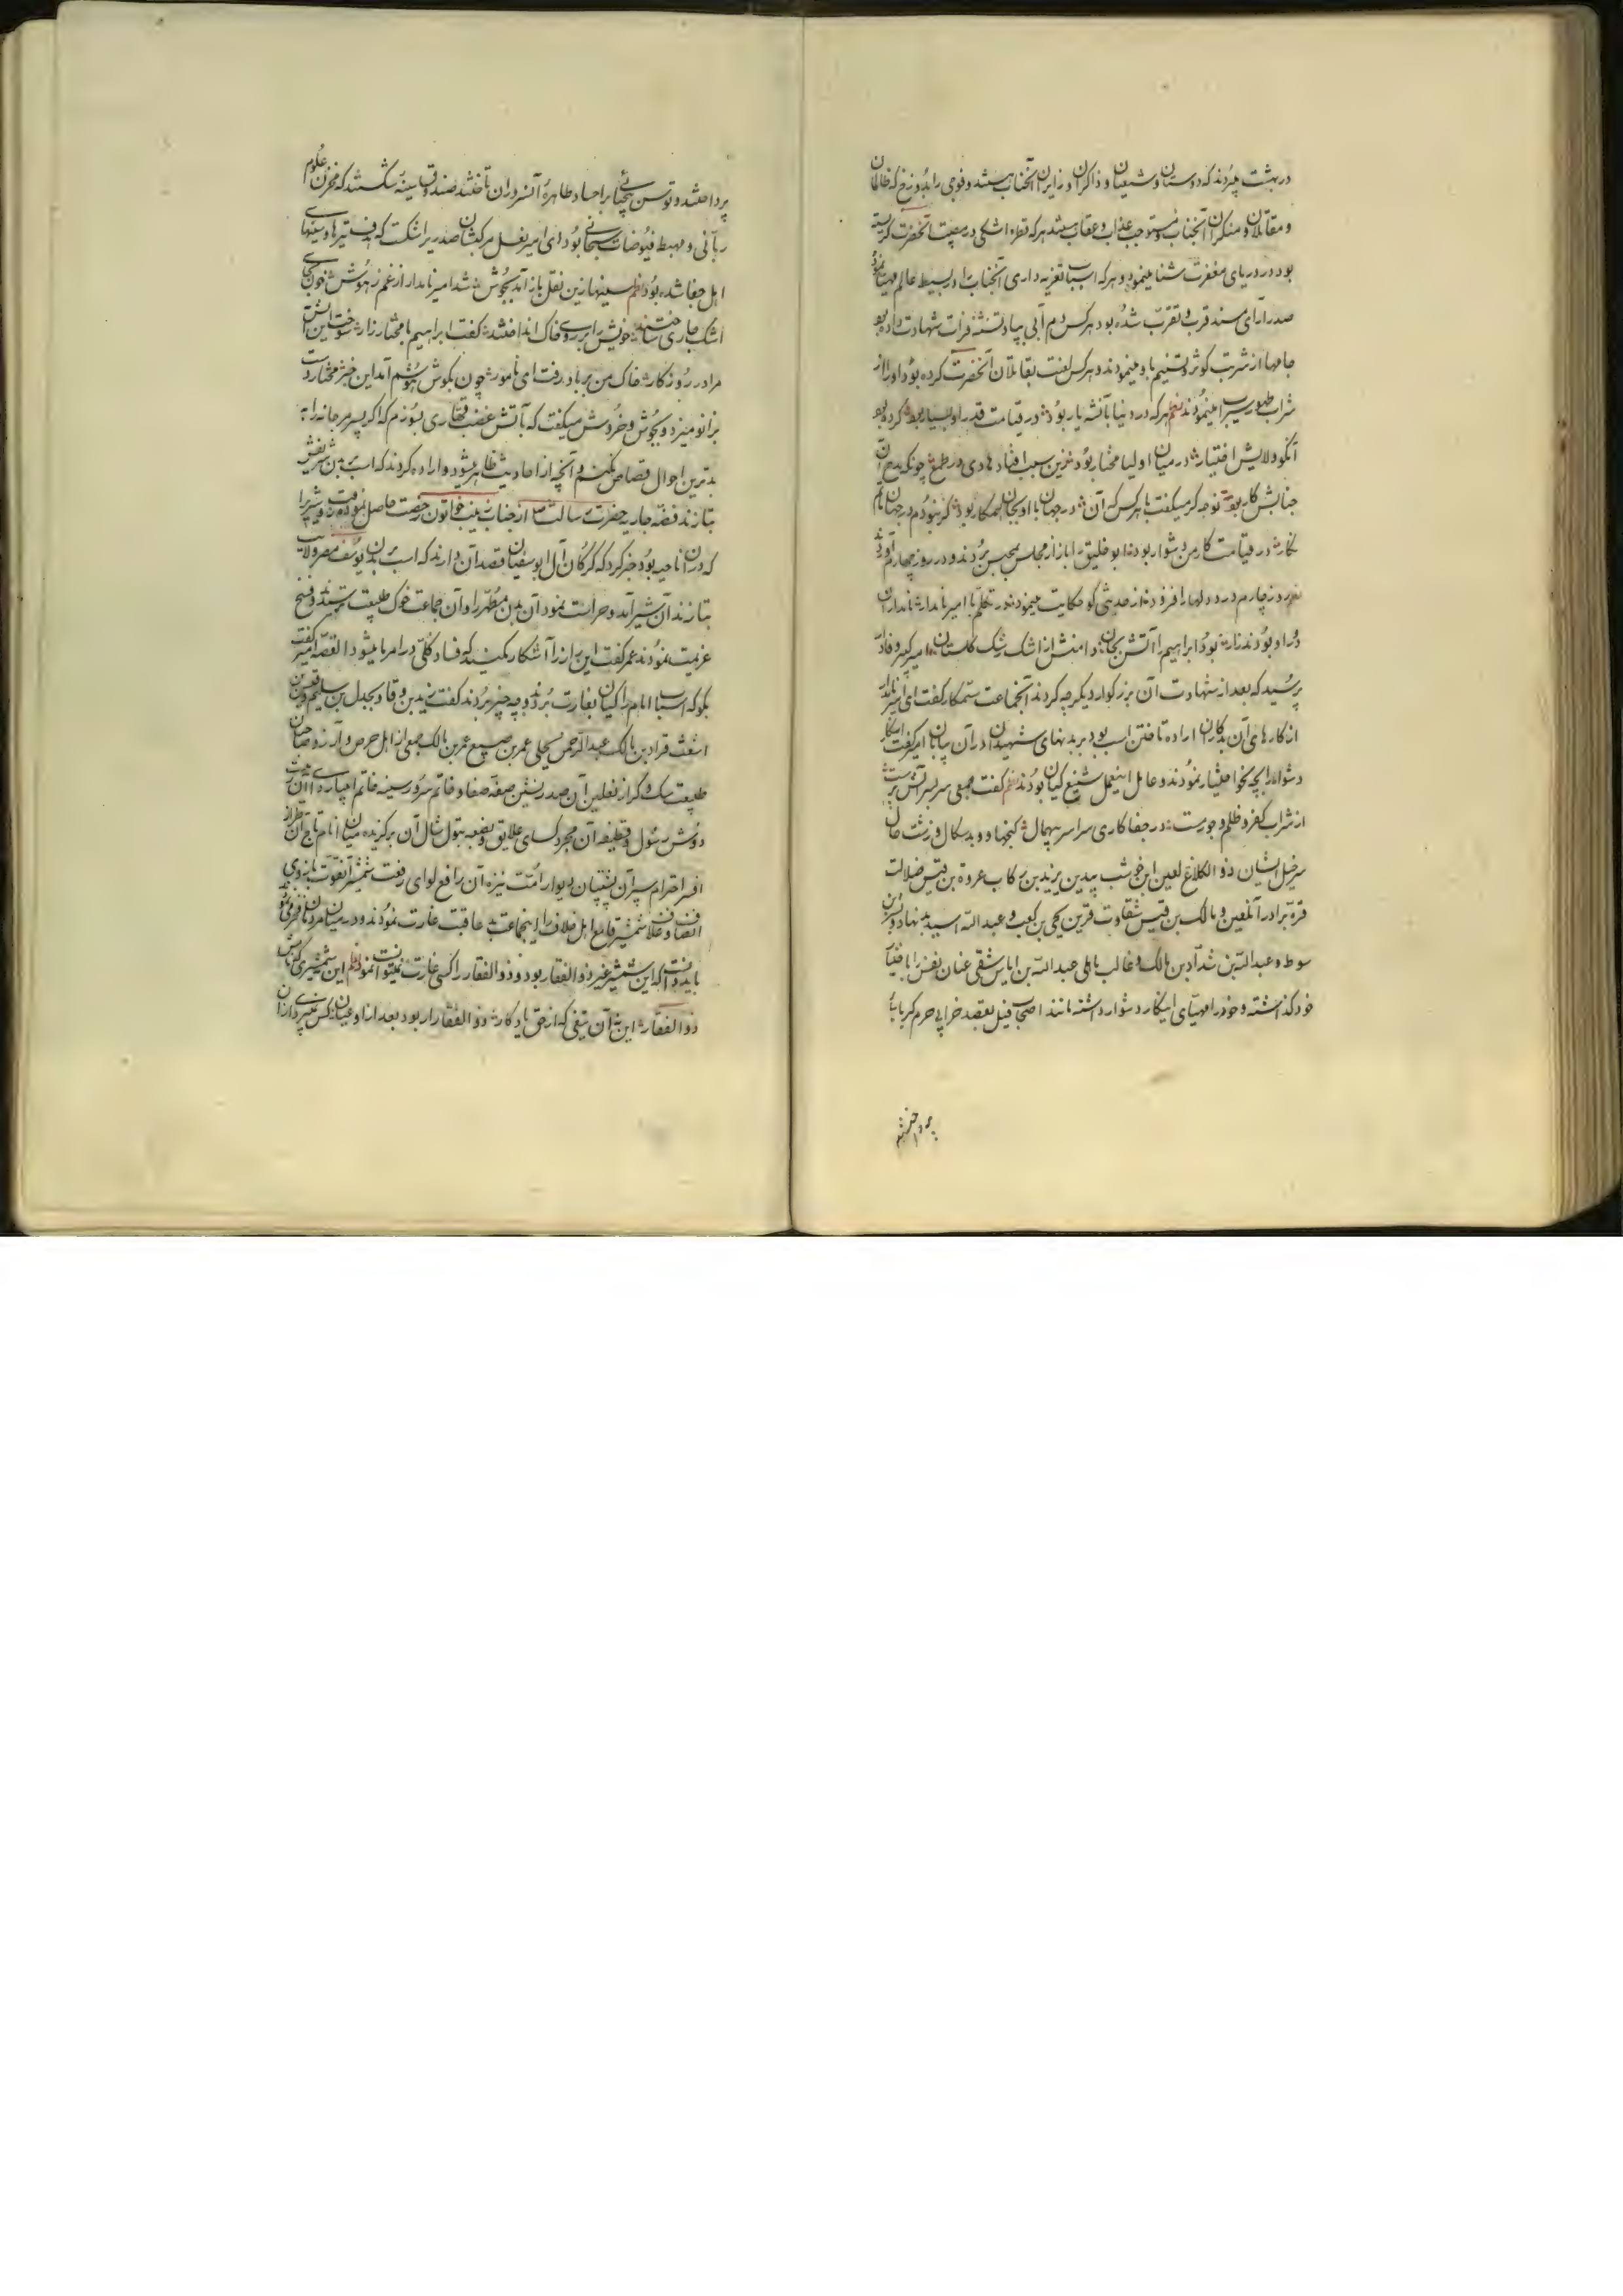 در بهشت میبردند که دوستان و شیعیان و ذاکران و زایران آنجناب هستند و فوجی را بدوزخ که ظالمان
و مقاتلان و منکران آنجناب و مستوجب عذاب و عقاب هستند هر که قطره اشکی در مصیبت آنحضرت کریسته
بود در دریای مغفرت شنا مینمود و هر که اسباب تعزیه داری آنجناب را در بسیط عالم مهیا نموده
صدر آرای مسند قرب و تقرب شده بود هر کس دم آبی بیاد تشنه فرات شهادت داده بود
جامها از شربت کوثر و تسنیم باو مینمودند و هر کس لعنت بقاتلان آنحضرت کرده بود او را از
شراب طهور سیراب مینمودند نظم هر که در دنیا بآنشه یار بود در قیامت قدر او بسیار بود
آنکو ولایش اختیار در میان اولیا مختار بود زین سبب افتاد هادی در طمع چونکه مدح آن
جنابش کار بود
کار در قیامت کار من دشوار بود ابو خلیق را باز از مجلس بحبس بردند و در روز چهارم آوردند
روز چارم درد دلها را فزود از حدیثی کو حکایت مینمود در تکلم با امیر نامدار نامداران
در او بودند زار بود ابراهیم را آتش بجان دامنش از اشک رشک گلستان امیر کبیر وفادار
پرسید که بعد از شهادت آن بزرکوار دیکر چه کردند آنجماعت ستمکار کفت ای امیر نامدار
از کارهای آن بدکاران اراده تاختن اسب بود بر بدنهای شهیدان در آن بیابان امیر کفت اینکار
دشوار را بچه نحو اختیار نمودند و عامل اینعمل شنیع کیان بودند نظم کفت جمعی سر بسر آتش پرست
از شراب کفر و ظلم و جور مست در جفاکاری سراسر بیهمال و بدسکال و زشت حال
سرخیل ایشان ذو الکلاغ لعین ابن خوشب بیدین یزید بن رکاب عروة بن قیس ضلالت
قره برادر آنلعین و مالک بن قیس شقاوت قرین یحیی بن کعب و عبد الله اسید بدنهاد
سوط و عبد الله بن شداد بن مالک و غالب باهلی عبد الله بن ایاس شقی عنان نفس را باختیار
خود کذاشته و خود را مهیای اینکار دشوار داشته مانند اصحاب فیل بقصد خرابی حرم کبریا
پرداختند
پرداختند و توسن بیحیائی بر اجساد طاهرهٔ آنسروران تاختند صندوق سینهٔ شکستند که مخزن علوم
ربانی و مهبط فیوضات سبحانی بود ای امیر نعل مرکبشان صدری را شکست که هدف تیرها و سینهای
اهل جفا شده بود نظم سینها زین نقل باز آمد بجوش شد امیر نامدار از غم ز هوش خون بجای
اشک جاری ساختند خویش را بر روی خاک انداختند کفت ابراهیم با مختار زار سوخت این آتش
مرا در روزکار خاک من بر باد رفت ای نامور چون بکوش هوشم آمد این خبر مختار دست
بر زانو میزد و بجوش و خروش میکفت که بآتش غضب قهاری بسوزم که اکر پسر مرجانه را
بدترین احوال قصاص نکنم و آنچه از احادیث ظاهر میشود اراده کردند که اسب بر بدن شریفش
بتازند فضه جاریه حضرت رسالت ازجناب زینب خاتون رخصت حاصل نموده رفت و شیر را
که در آن ناحیه بود خبر کرد که کرکان آل ابو سفیان قصد آن دارند که اسب بر بدن یوسف مصر ولایت
بتازند آن شیر آمد و حراست نمود آن بدن مطهر را و آن جماعت خوک طبیعت ترسیدند و فسخ
عزیمت نمودند عمر کفت این راز را آشکار مکنید که فساد کلی در امر ما میشود القصه امیر کفت
بکو که اسباب امام را کیان بغارت بردند و چه چیز بردند کفت یزید بن وقاد بجدل بن سلیم قیس بن
اشعث قراد بن مالک عبد الرحمن بجلی عمر بن صبیع عمر بن مالک و جمعی از اهل حرص و آز و صاحبان
طبیعت سک و کراز نعلین آن صدر نشین صفه صفا و خاتم سرور سینه خاتم انبیا
دوش رسول و قطیفه آن مجرد کسای علایق و بضعه بتول شال آن برکزیده میان انام تاج آن طراز
افسر احترام سپر آن پشتیبان دیوار امت نیزه آن رافع لوای رفعت شمشیر آنقوت بازوی
انصاف و غلاف شمشیر قامع اهل خلاف را اینجماعت بد عاقبت غارت نمودند و در میان مردمان
باید دانست که این شمشیر غیر ذو الفقار بود و ذو الفقار را کسی غارت نمیتوانست نمود نظم این شمشیری که
ذو الفقار این نه آن تیغی که از حق یادکار ذو الفقار ار بود بعد از او عیان کس نمیبرد از